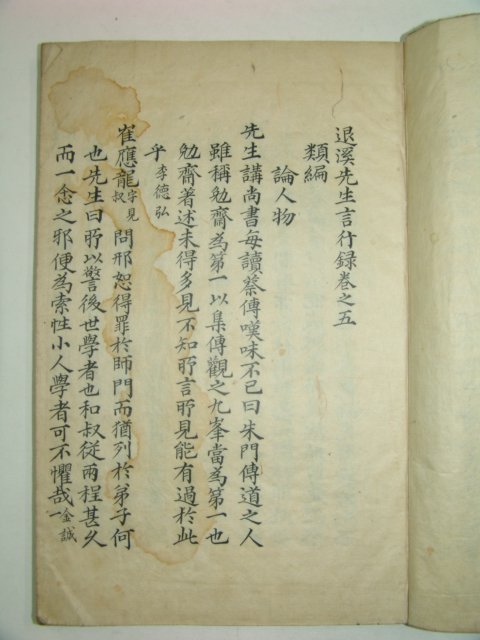 退溪先生言行録卷之五
類編
論人物
先生講尚書每讀蔡傳嘆味不已曰朱門傳道之人
雖稱勉齋為第一以集傳觀之九峯當為第一也
勉齋著述未得多見不知所言所見能有過於此
乎 李德弘
崔應龍字見叔 問邢恕得罪於師門而猶列於弟子何
也先生曰所以警後世學者也和叔從兩程甚久
而一念之邪便為索性小人學者可不懼哉 金誠一